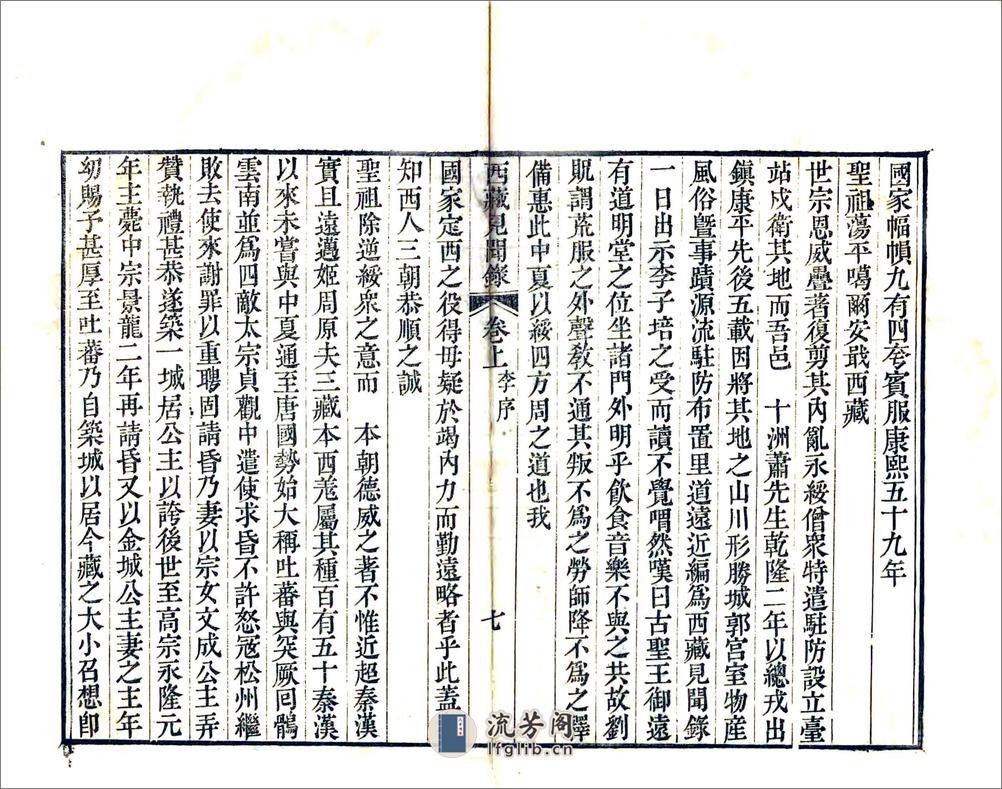 國家幅㡚九有四夸賓服康熙五十九年
聖祖蕩平噶爾安戢西藏
世宗恩威疊著復剪其內亂永綏僧衆特遣駐防設立臺
站戍衛其地而吾邑 十洲蕭先生乾隆二年以總戎出
鎮康平先後五載因將其地之山川形勝城郭宫室物産
風俗曁事蹟源流駐防布置里道遠近編爲西藏見聞錄
一日出示李子培之受而讀不覺喟然嘆曰古聖王御遠
有道明堂之位坐諸門外明乎飲食音樂不與之共故劉
貺謂荒服之外聲敎不通其叛不爲之勞師降不爲之釋
備惠此中夏以綏四方周之道也我
西藏見聞錄 卷上 李序 七
國家定西之役得毋疑於竭內力而勤遠略者乎此蓋
知西人三朝恭順之誠
聖祖除逆綏衆之意而 本朝德威之著不惟近超秦漢
實且遠邁姬周原夫三藏本西羗屬其種百有五十秦漢
以來未嘗與中夏通至唐國勢始大稱吐蕃與突厥囘鶻
雲南並爲四敵太宗貞觀中遣使求昏不許怒宼松州繼
敗去使來謝罪以重聘固請昏乃妻以宗女文成公主弄
贊執禮甚恭遂築一城居公主以誇後世至高宗永隆元
年主薨中宗景龍二年再請昏又以金城公主妻之主年
幼賜予甚厚至吐蕃乃自築城以居今藏之大小召想卽
流芳阁
lfglib.cn